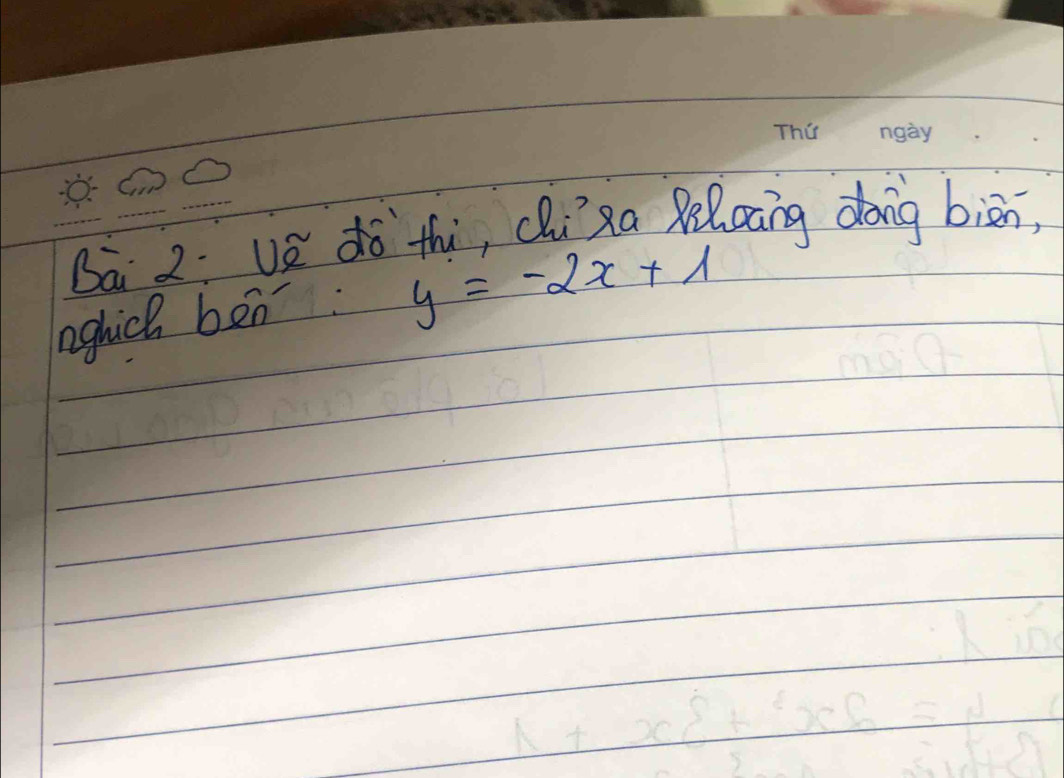 Thứ ngày
Bài 2: Vẽ đồ thị, chỉ ra khoảng đồng biến,
nghịch bến : y = -2x + 1